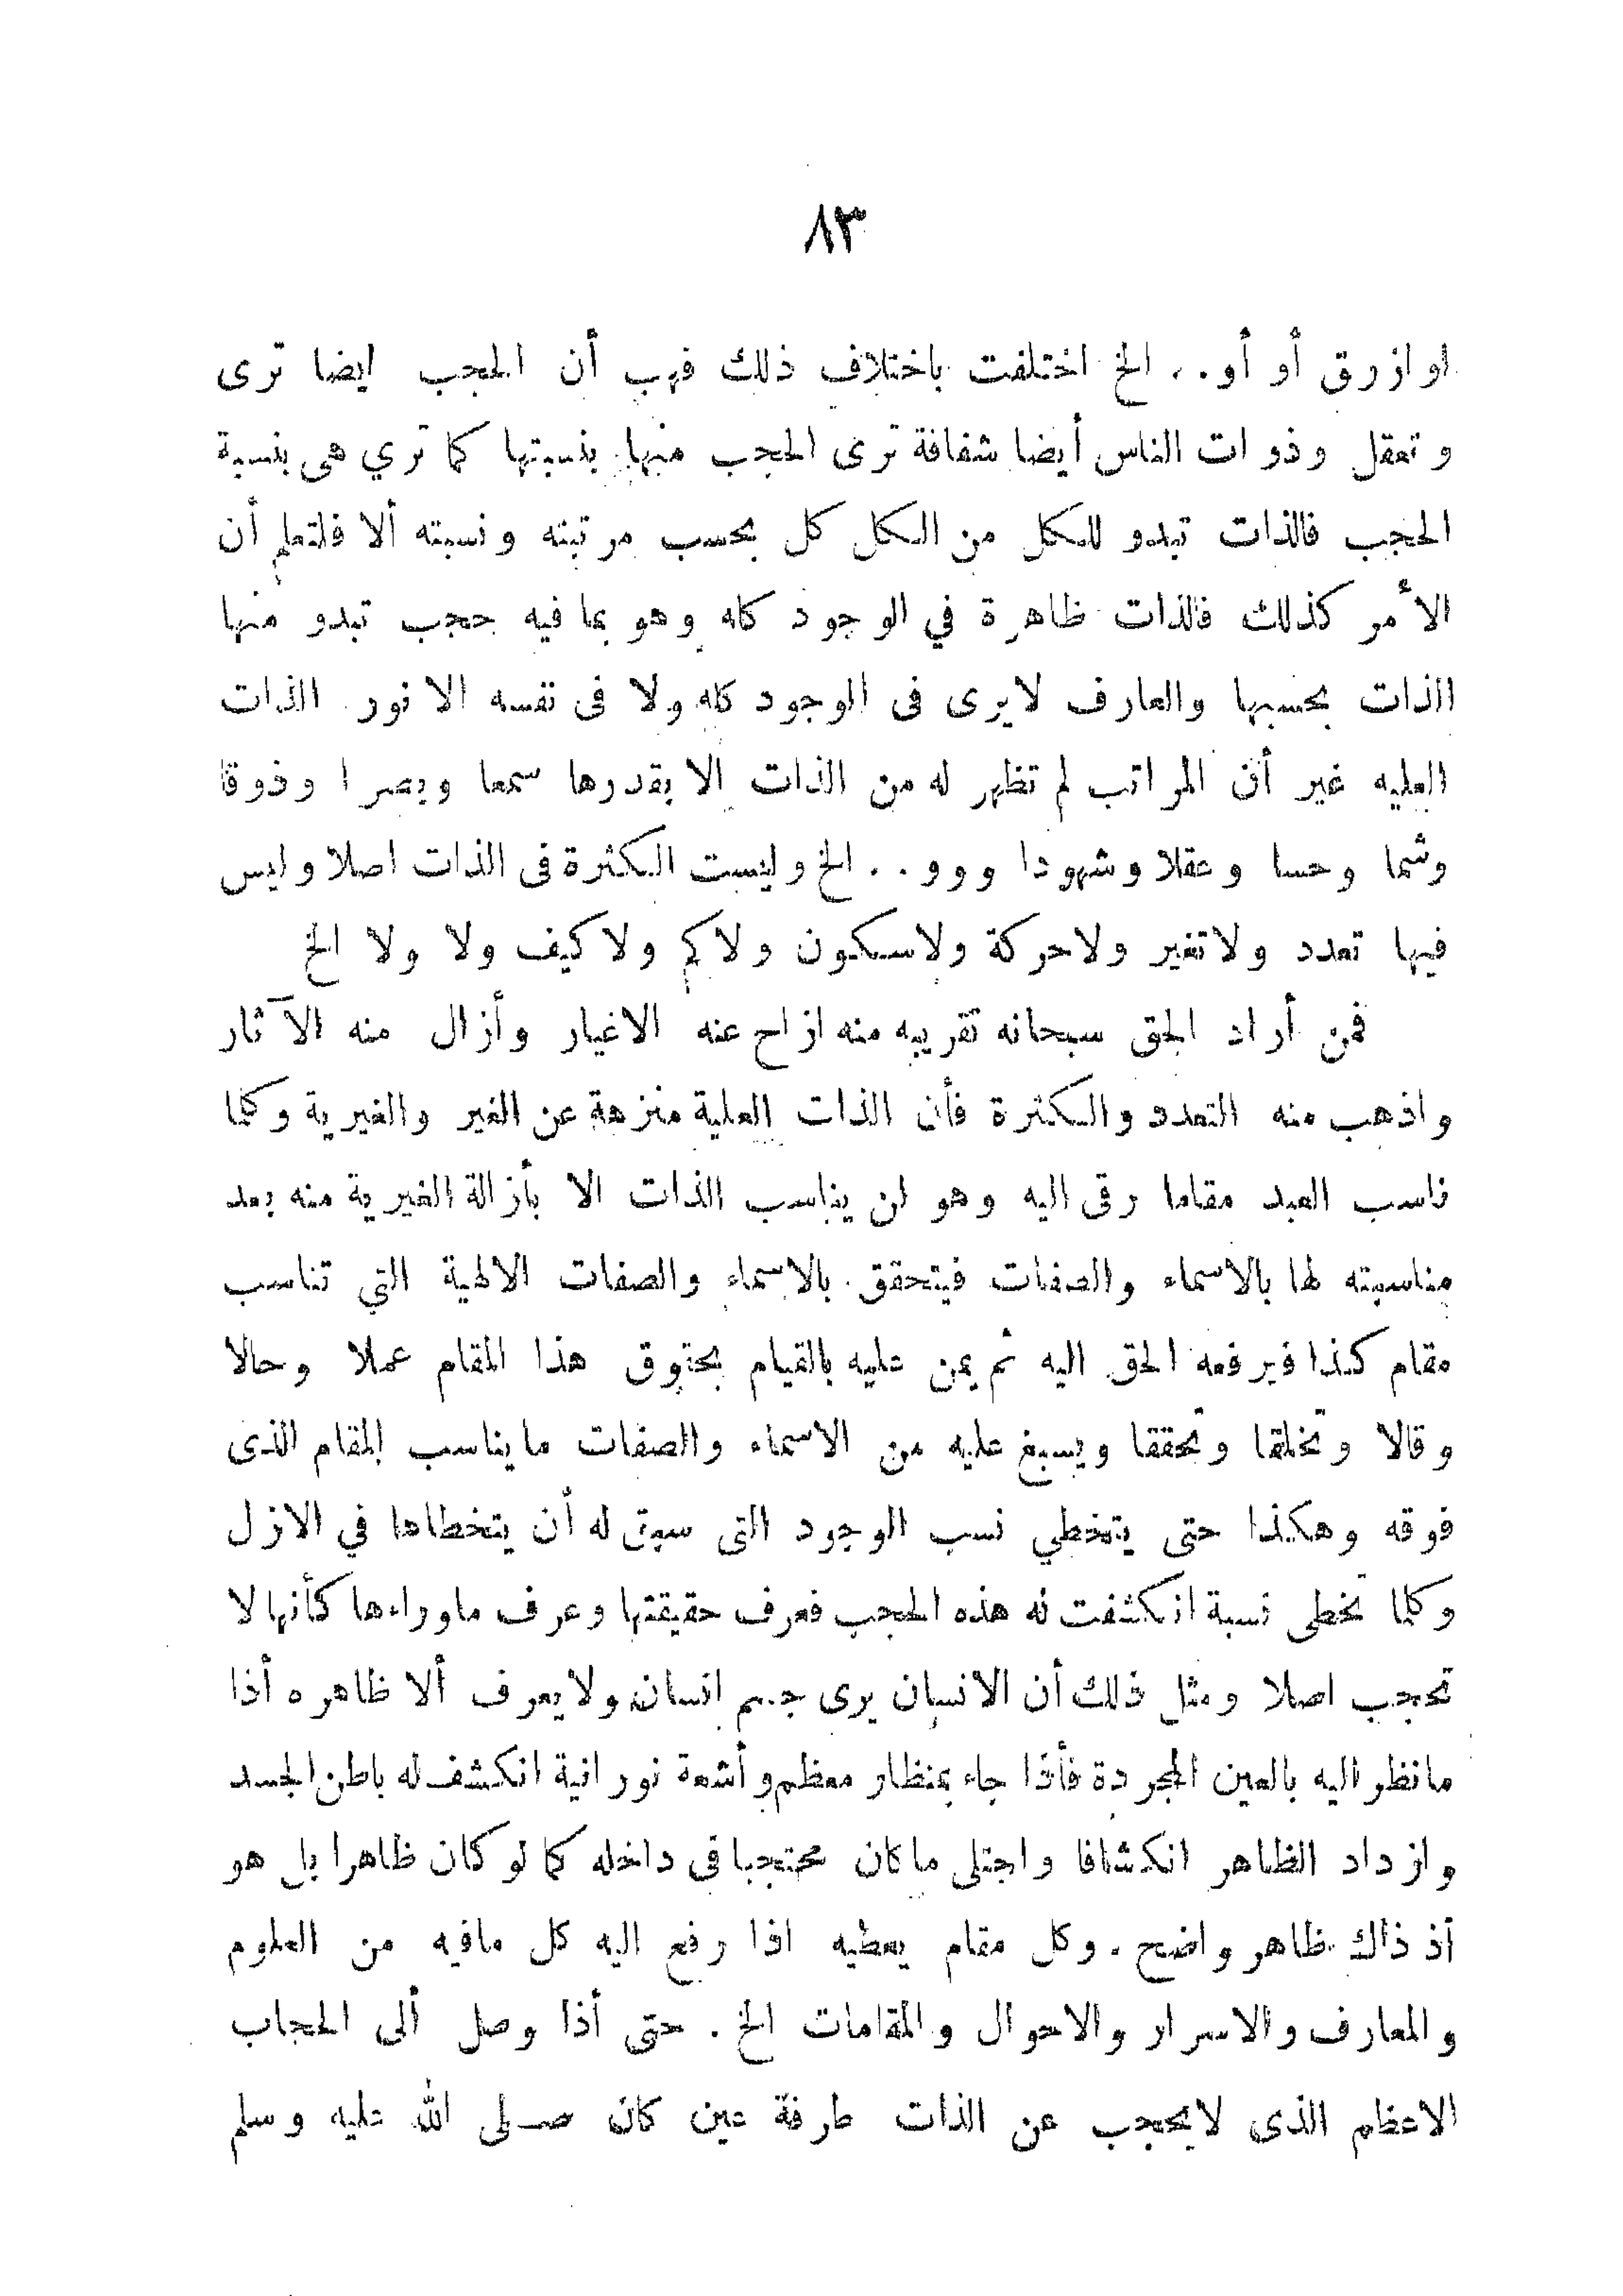 ٨٣
او ازرق أو أو.. الخ اختلفت باختلاف ذلك فهب أن الحجب ايضا ترى
وتعقل وذوات الناس أيضا شفافة ترى الحجب منها بنسبتها كما تري هى بنسبة
الحجب فالذات تبدو للكل من الكل كل بحسب مرتبته ونسبته ألا فلتعلم أن
الأمر كذلك فالذات ظاهرة في الوجود كله وهو بما فيه حجب تبدو منها
الذات بحسبها والعارف لايرى فى الوجود كله ولا فى نفسه الا نور الذات
العليه غير أن المراتب لم تظهر له من الذات الا بقدرها سمعا وبصرا وذوقا
وشما وحسا وعقلا وشهودا ووو.. الخ وليست الكثرة فى الذات اصلا وليس
فيها تعدد ولاتغير ولاحركة ولاسكون ولاكم ولاكيف ولا ولا الخ
فمن أراد الحق سبحانه تقريبه منه ازاح عنه الاغيار وأزال منه الآثار
واذهب منه التعدد والكثرة فأن الذات العلية منزهة عن الغير والغيرية وكلما
ناسب العبد مقاما رقى اليه وهو لن يناسب الذات الا بأزالة الغيرية منه بعد
مناسبته لها بالاسماء والصفات فيتحقق بالاسماء والصفات الالهية التي تناسب
مقام كذا فيرفعه الحق اليه ثم يمن عليه بالقيام بحقوق هذا المقام عملا وحالا
وقالا وتخلقا وتحققا ويسبغ عليه من الاسماء والصفات مايناسب المقام الذى
فوقه وهكذا حتى يتخطي نسب الوجود التى سبق له أن يتخطاها في الازل
وكلما تخطى نسبة انكشفت له هذه الحجب فعرف حقيقتها وعرف ماوراءها كأنها لا
تحجب اصلا ومثل ذلك أن الانسان يرى جسم انسان ولايعرف ألا ظاهره أذا
مانظر اليه بالعين المجردة فأذا جاء بمنظار معظم وأشعة نورانية انكشف له باطن الجسد
وازداد الظاهر انكشافا واجتلى ماكان محتجبا فى داخله كما لو كان ظاهرا بل هو
أذ ذاك ظاهر واضح. وكل مقام يعطيه اذا رفع اليه كل مافيه من العلوم
والمعارف والاسرار والاحوال والمقامات الخ. حتى أذا وصل ألى الحجاب
الاعظم الذى لايحجب عن الذات طرفة عين كان صلى الله عليه وسلم